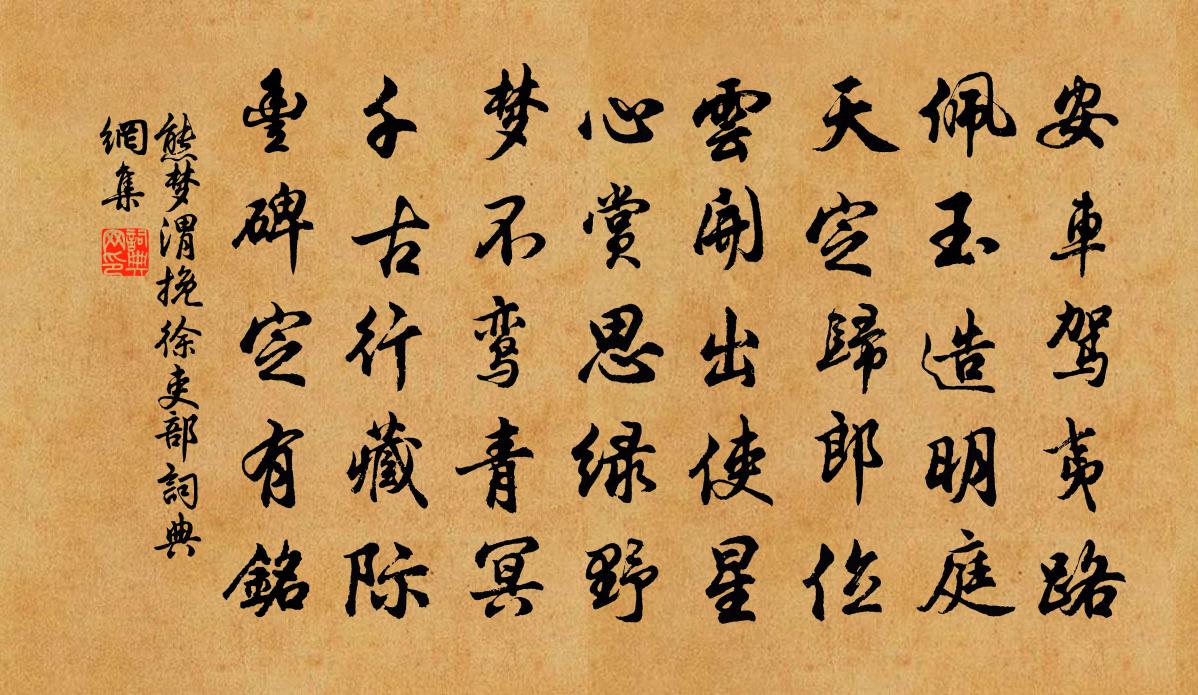 安車驾夷路
佩玉造明庭
天定歸郎位
雲開出使星
心赏思绿野
梦不鸾青冥
千古行藏际
豐碑定有銘
熊梦渭挽徐吏部詞典
網集
詞典网印